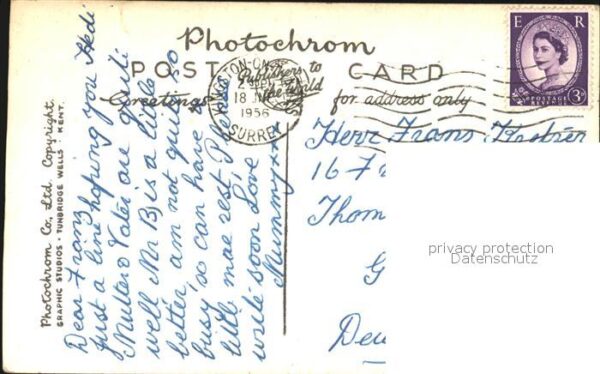 Photochrom
POST CARD
Publishers to
the World
Greetings
for address only
E R
POSTAGE
REVENUE
3D
WALTON-ON-
2
18 JUNE
1956
SURREY
Photochrom Co., Ltd. Copyright.
GRAPHIC STUDIOS · TUNBRIDGE WELLS · KENT.
Dear Franz
just a line hoping you Hedi
Mutter & Vater are quiti
well Mr B is a little
better, am not quite so
busy, so can have a
little mae rest, Please
write soon Love
Mummy xxx
Herr Frans
16 F
Thom
G
Deu
privacy protection
Datenschutz